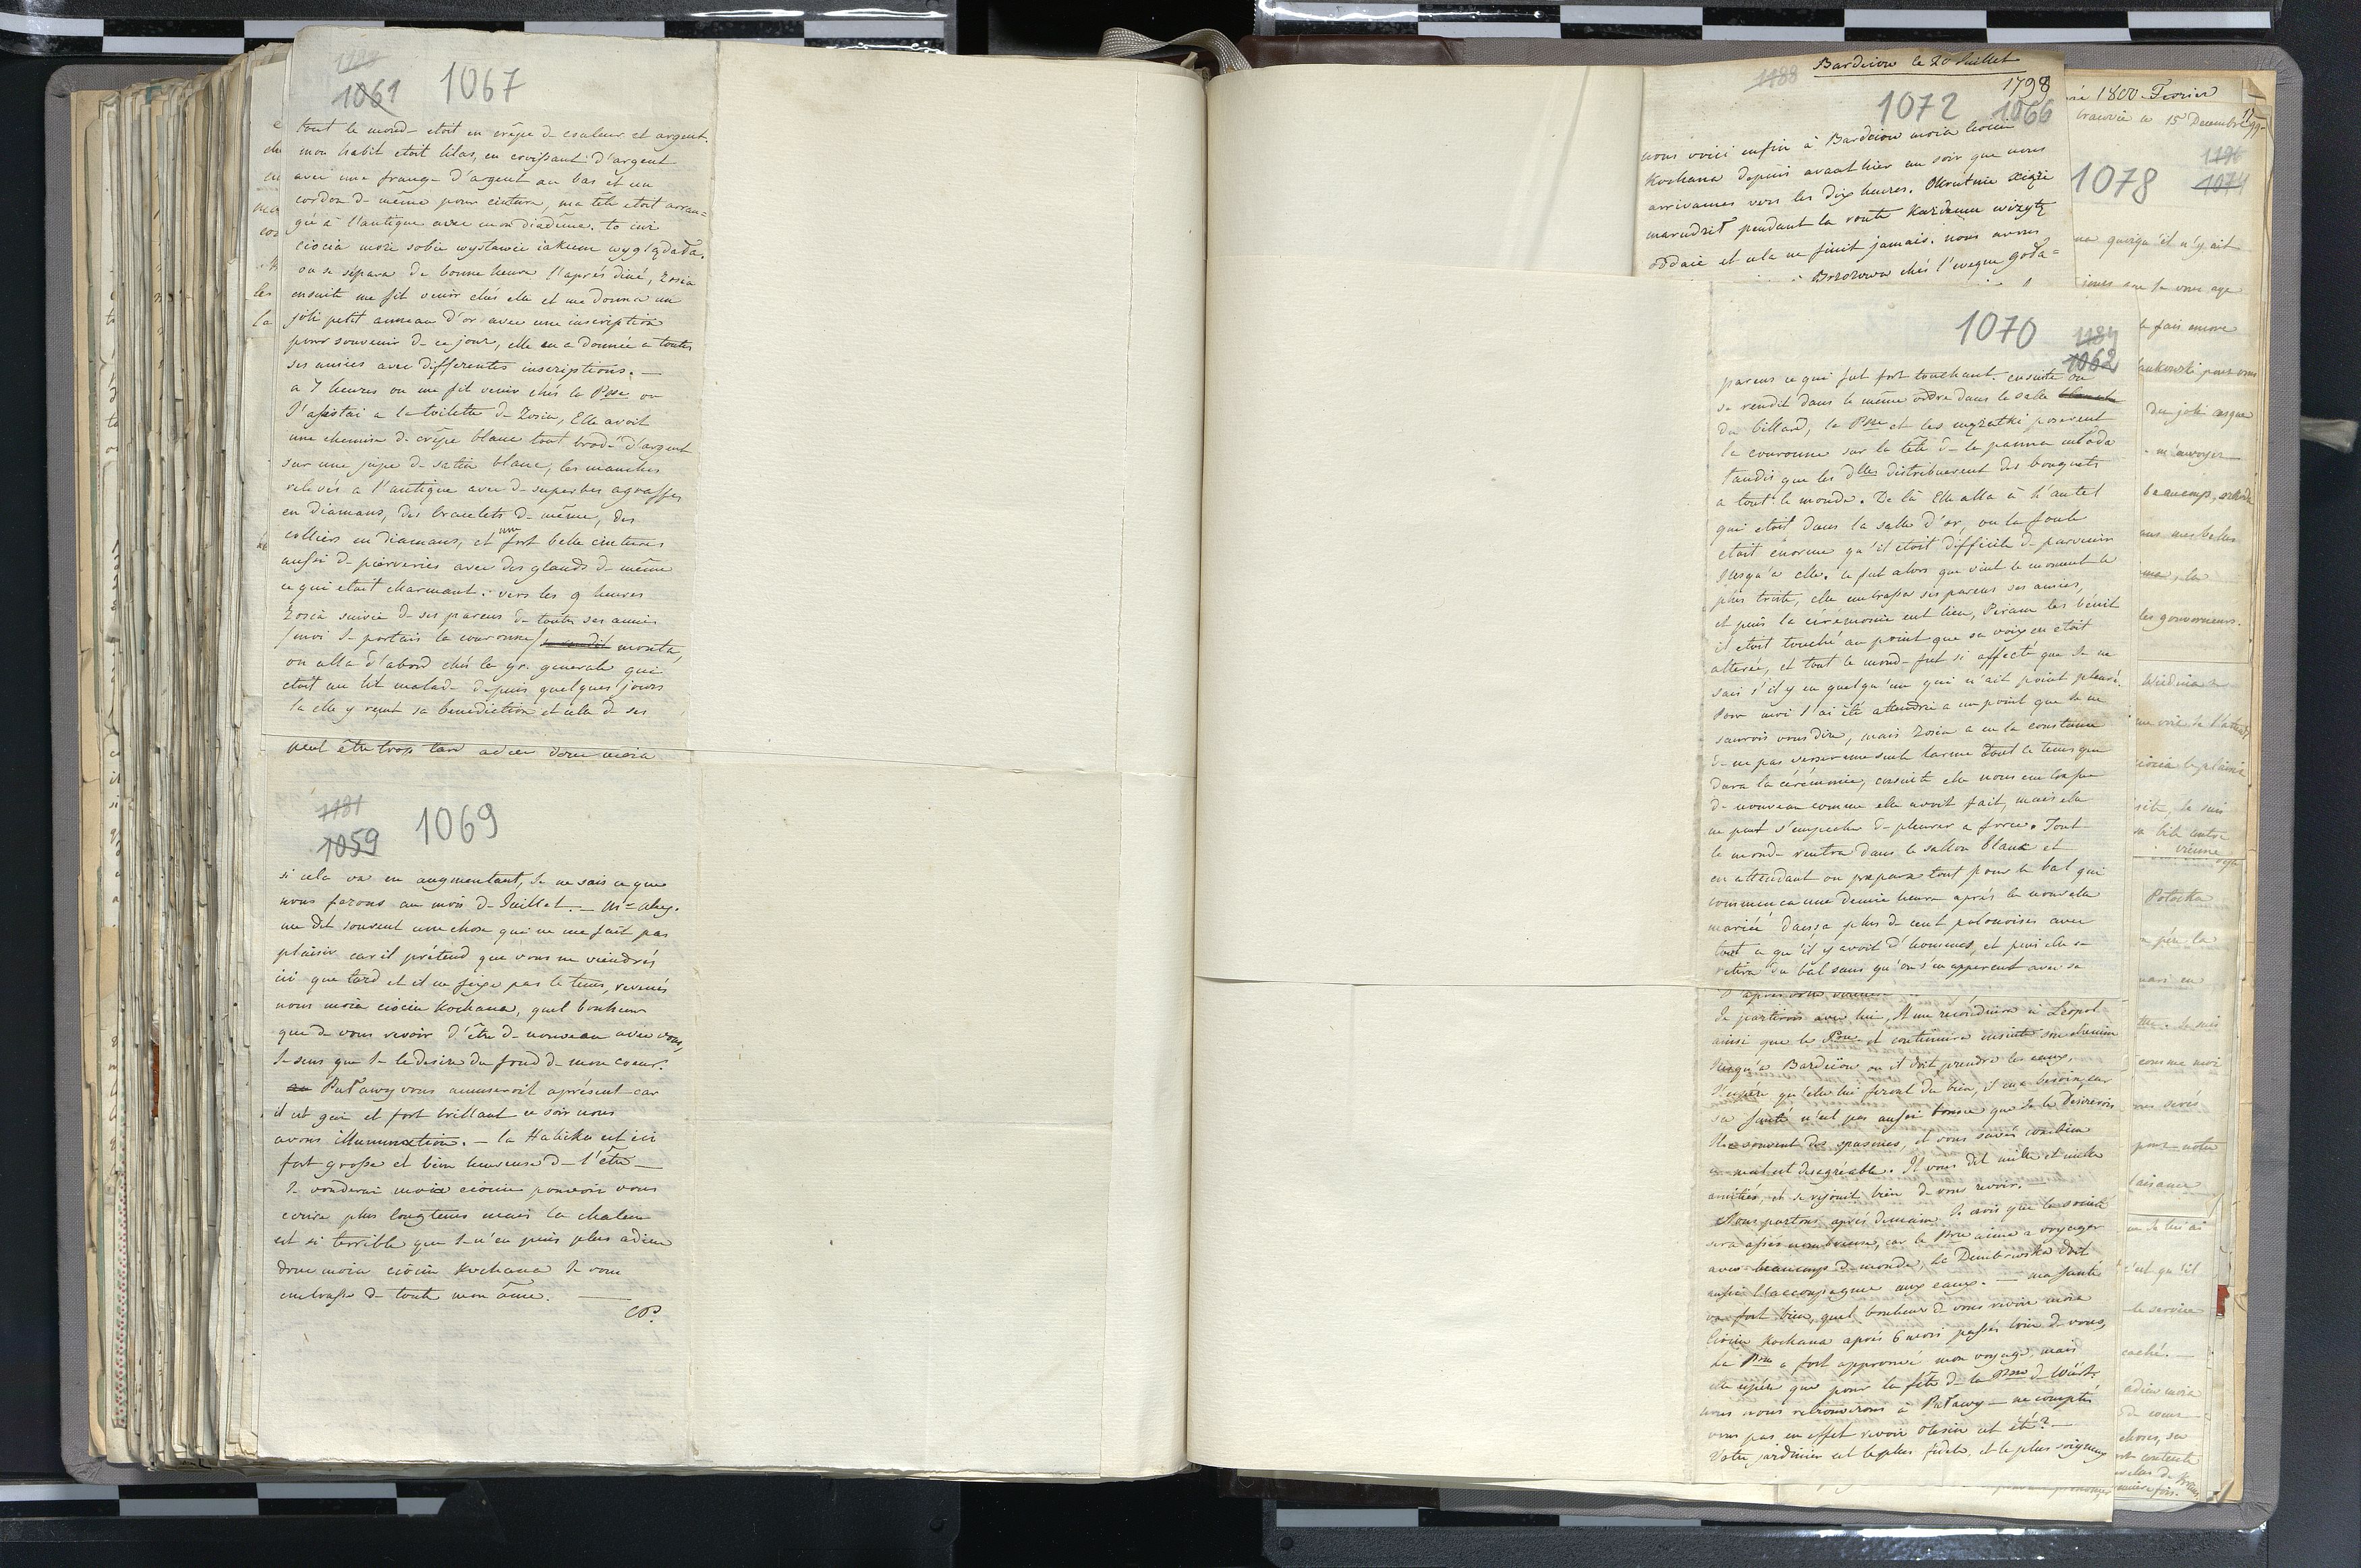 1180
1061 1067
tout le mond- etoit en crêpe d- couleur et argent.
mon habit etoit lilas, en croissant d'argent
avec une frang- d'argent au bas et un
cordon d- même pour ceinture, ma tête etoit arran=
gée à l'antique avec mon diadême. to iuż
ciocia może sobie wystawić iakem wyglądała.
on se sépara de bonne heure l'aprés diné, Zosia
ensuite me fit venir chés elle et me donna un
joli petit anneau d'or avec une inscription
pour souvenir d- ce jour, elle en a donnée a toutes
ses amies avec differentes inscriptions. —
a 7 heures on me fit venir chés la Psse ou
j'assistai a la toilette d- Zosia, Elle avoit
une chemise d- crêpe blanc tout brodé d'argent
sur une jupe d- satin blanc, les manches
relevés a l'antique avec d- superbes agraffes
en diamans, des bracelets d- même, des
colliers en diamans, et une fort belle ceinture
aussi d- pierreries avec des glands d- même
ce qui etoit charmant. vers les 9 heures
Zosia suivie d- ses parens d- toutes ses amies
/moi Je portois la couronne/ monta,
on alla d'abord chés la gr. generale qui
etoit au lit malad- depuis quelques jours
la elle y reçut sa benediction et celle d- ses
peut être trop tard adieu donc moia
1181
1059 1069
si cela va en augmentant, Je ne sais ce que
nous ferons au mois d- Juillet. — Mr Aley.
me dit souvent une chose qui ne me fait pas
plaisir car il prétend que vous ne viendrés
ici que tard et il ne fixe pas le tems, revenés
nous moia ciociu Kochana, quel bonheur
que de vous revoir d'être d- nouveau avec vous,
Je sens que Je le desire du fond d- mon coeur.
Puławy vous amuseroit aprésent car
il est gai et fort brillant ce soir nous
avons illumination. — la Halika est ici
fort grosse et bien heureuse d- l'être —
Je voudrai moia ciociu pouvoir vous
ecrire plus longtems mais la chaleur
est si terrible que Je n'en puis plus adieu
donc moia ciociu Kochana Je vous
embrasse d- toute mon âme. —
CP.
Bardeiow le 20 Juillet
1798
1188
1072 1066
nous voici enfin à Bardeiow moia ciociu
Kochana depuis avant hier au soir que nous
arrivames vers les dix heures. Okrutnie xiąże
marudził pendant la route każdemu wizytę
oddaie et cela ne finit jamais. nous avons
Brzozowa chés l'eveque Goła=
1070 1184
1062
parens ce qui fut fort touchant. ensuite on
se rendit dans le même ordre dans la salle blanche
du billard, la Psse et les mężatki poserent
la couronne sur la tête d- la panna młoda
tandis que les dlles distribuerent des bouquets
a tout le monde. De là Elle alla à l'autel
qui etoit dans la salle d'or, ou la foule
etoit enorme qu'il etoit difficile d- parvenir
Jusqu'a elle. ce fut alors que vint le moment le
plus triste, elle embrassa ses parens ses amies,
et puis la cérémonie eut lieu, Piram les bénit
il etoit touché au point que sa voix en etoit
alterée, et tout le mond- fut si affecté que Je ne
sais s'il y en quelqu'un qui n'ait point pleuré.
Pour moi J'ai été attendrie a un point que Je ne
saurois vous dire, mais Zosia a eu la constance
d- ne pas verser une seule larme tout le tems que
dura la cérémonie, ensuite elle nous embrassa
d- nouveau comme elle avoit fait, mais ela
ne put s'empecher d- pleurer a force. Tout
le mond- rentra dans le sallon blanc et
en attendant on prepara tout pour le bal qui
commença une demie heure aprés la nouvelle
mariée dansa plus d- cent polonoises avec
tout ce qu'il y avoit d'hommes, et puis elle se
retira du bal sans qu'on s'en apperçut avec sa
Je partirai avec lui, Il me reconduira à Léopol
ainsi que la Psse et continuera ensuite son chemin
Jusqu'a Bardeiow ou il doit prendre les eaux.
J'espére qu'elles lui feront du bien, il en a besoin, car
sa santé n'est pas aussi bonne que Je le desirerois
Il a souvent des spasmes, et vous savés combien
ce mal est desagréable. Il vous dit mille et mille
amitiés, et se rejouit bien d- vous revoir. —
Nous partons aprés demain. Je crois que la société
sera assés nombreuse, car la Psse aime a voyager
avec beaucoup d- monde, la Dembowska doit
aussi l'accompagner aux eaux. — ma santé
va fort bien, quel bonheur d- vous revoir moia
Ciociu Kochana aprés 6 mois passés loin d- vous,
La Psse a fort approuvé mon voyage, mais
elle espére que pour la fête d- la Psse d- Würt:
nous nous retrouverons à Puławy — ne comptés
vous pas en effet revoir Olesin cet été? —
Votre jardinier est le plus fidele, et le plus soigneux
1800 Fevrier
15 Decembre
1078 1196
1074
quoiqu'il n'y ait
le fais encore
pour vous
du joli casque
m'envoyer
beaucoup,
les gouverneurs.
Potocka
comme moi
pour notre
Je lui ai
c'est qu'il
le service
caché. —
adieu moia